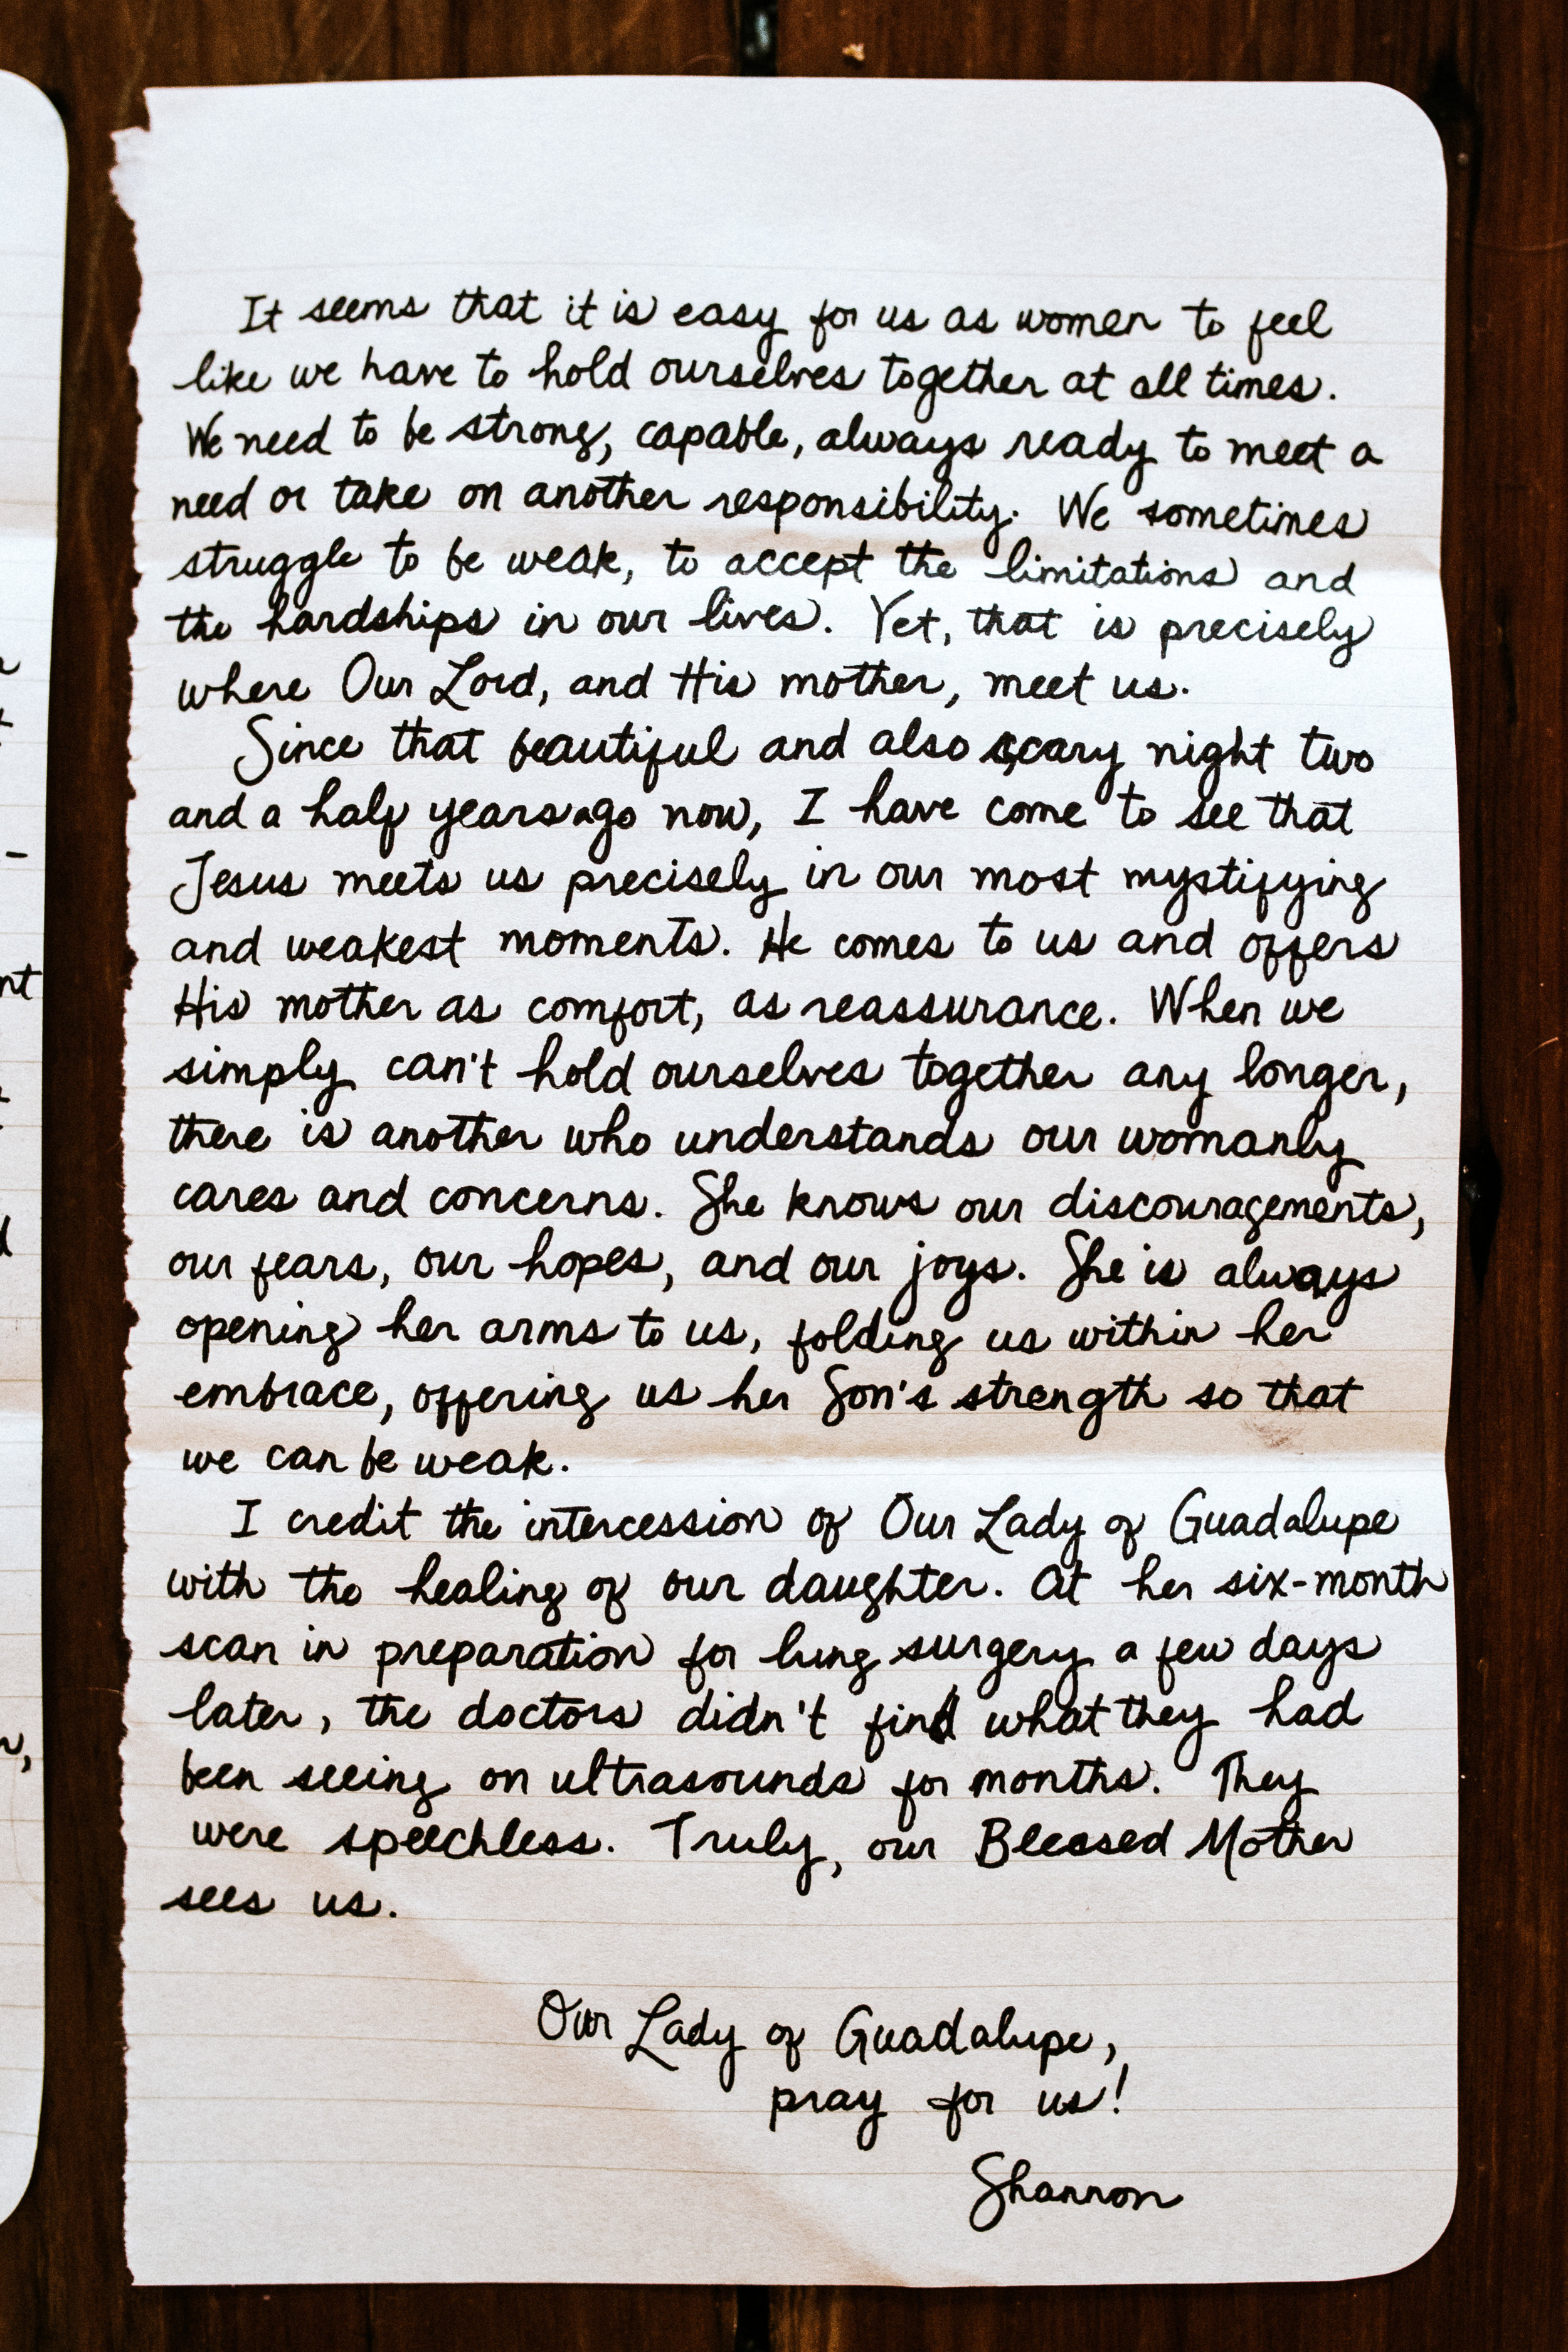 It seems that it is easy for us as women to feel
like we have to hold ourselves together at all times.
We need to be strong, capable, always ready to meet a
need or take on another responsibility. We sometimes
struggle to be weak, to accept the limitations and
the hardships in our lives. Yet, that is precisely
where Our Lord, and His mother, meet us.
Since that beautiful and also scary night two
and a half years ago now, I have come to see that
Jesus meets us precisely in our most mystifying
and weakest moments. He comes to us and offers
His mother as comfort, as reassurance. When we
simply can't hold ourselves together any longer,
there is another who understands our womanly
cares and concerns. She knows our discouragements,
our fears, our hopes, and our joys. She is always
opening her arms to us, folding us within her
embrace, offering us her Son's strength so that
we can be weak.
I credit the intercession of Our Lady of Guadalupe
with the healing of our daughter. At her six-month
scan in preparation for lung surgery a few days
later, the doctors didn't find what they had
been seeing on ultrasounds for months. They
were speechless. Truly, our Blessed Mother
sees us.
Our Lady of Guadalupe,
pray for us!
Shannon